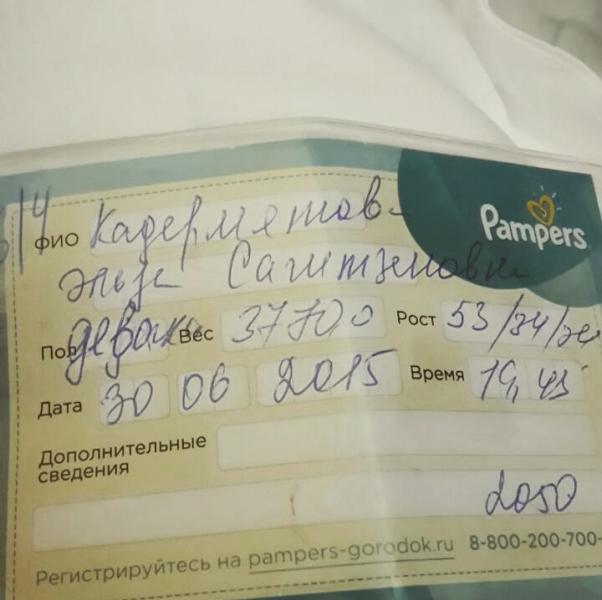 14
Pampers
ФИО Кадерметов-
Эльза Сагитзяновна
Пол девочка Вес 3770 0 Рост 53/34/34
Дата 30 06 2015 Время 19,45
Дополнительные
сведения
2050
Регистрируйтесь на pampers-gorodok.ru 8-800-200-700-